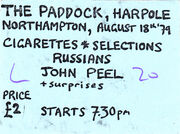 THE PADDOCK, HARPOLE
NORTHAMPTON, AUGUST 18th '79
CIGARETTES & SELECTIONS
RUSSIANS
JOHN PEEL 20
+ surprises
PRICE
£2 STARTS 7.30pm